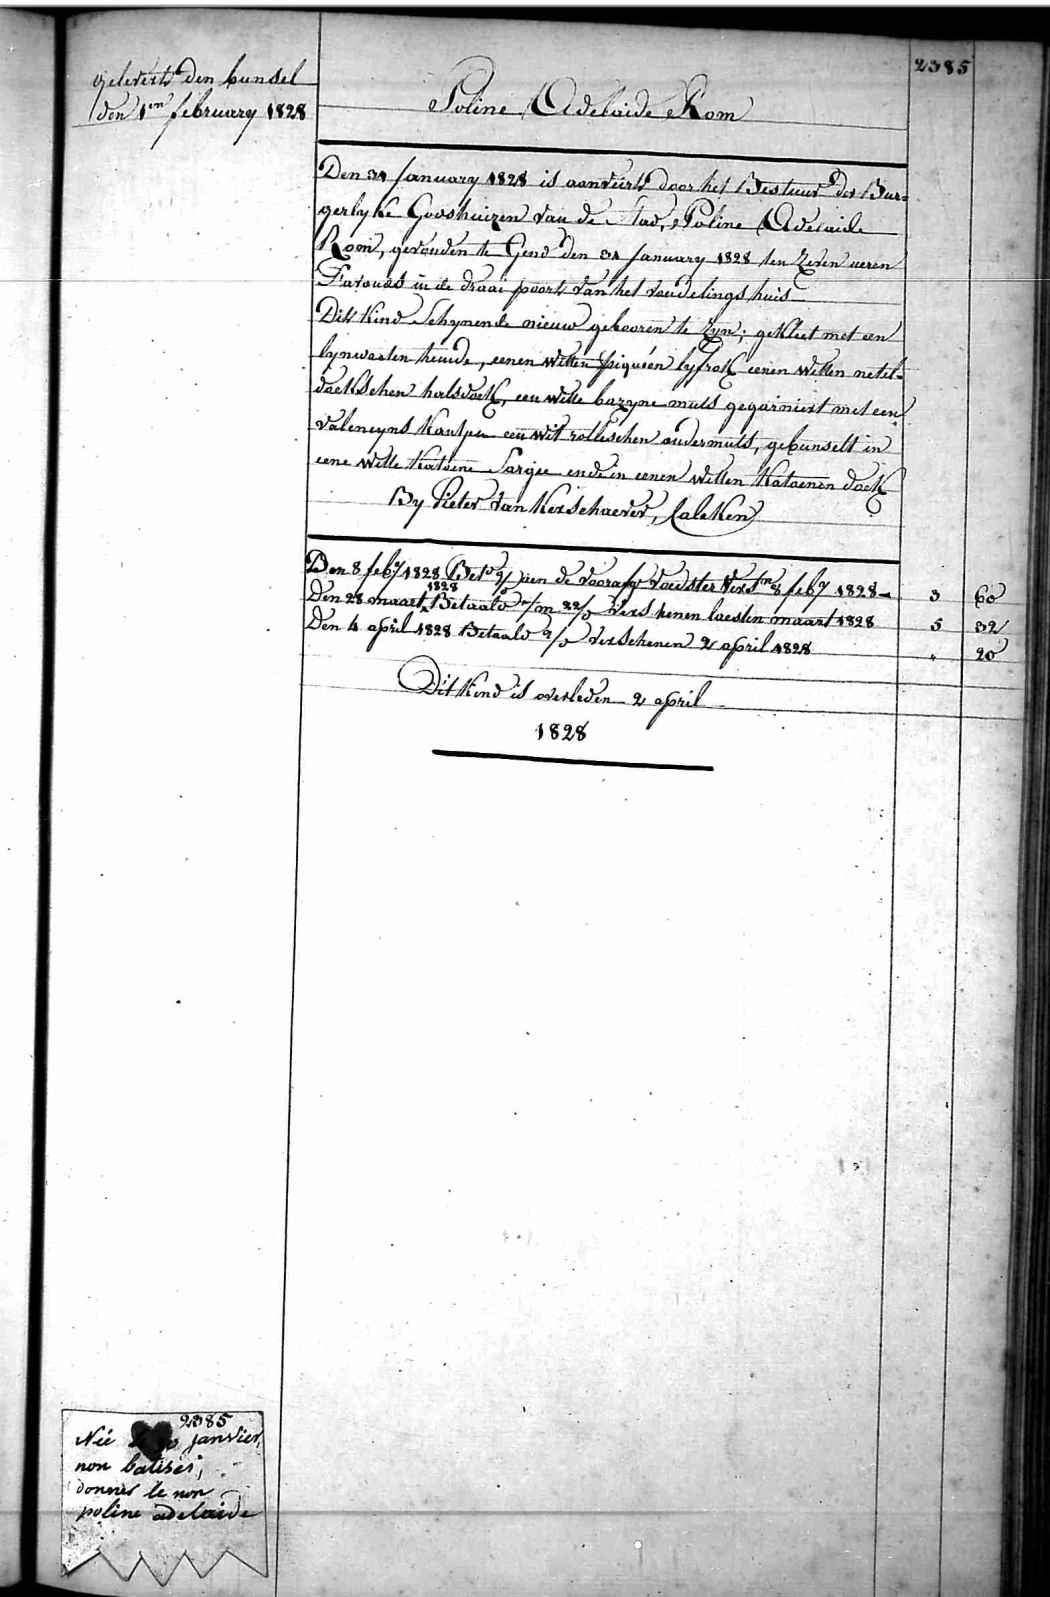 2385
gelevert den bunsel
den 1en february 1828
Poline Adelaide Rom
Den 31 January 1828 is aanveirt door het Bestuur der Bur=
gerlyke Godshuizen van de Stad, Poline Adelaide
Rom, gevonden te Gend den 31 January 1828 ten zeven ueren
s'avonds in de draai poort van het vondelingshuis
Dit Kind Schynende nieuw gebooren te zyn; gekleet met een
lynwaeten hemde, eenen witten piquéen lyfrok eenen witten netel=
doekschen halsdoek, een witte bazyne muts gegarniert met een
valencyns Kantjen een wit rolleschen ondermuts, gebunselt in
eene witte Katoene Sargie ende in eenen witten Katoenen doek
By Pieter Van Kerschaever, Caleken
Den 8 feby 1828 Bet. aen de voorafge voedster vers. 8 feby 1828 3 60
Den 28 maart 1828 Betaald verschenen laesten maart 1828 5 32
Den 4 april 1828 Betaald verschenen 2 april 1828 " 20
Dit Kind is overleden 2 april
1828
2385
Née janvier,
non batisés,
donner le non
poline adelaide